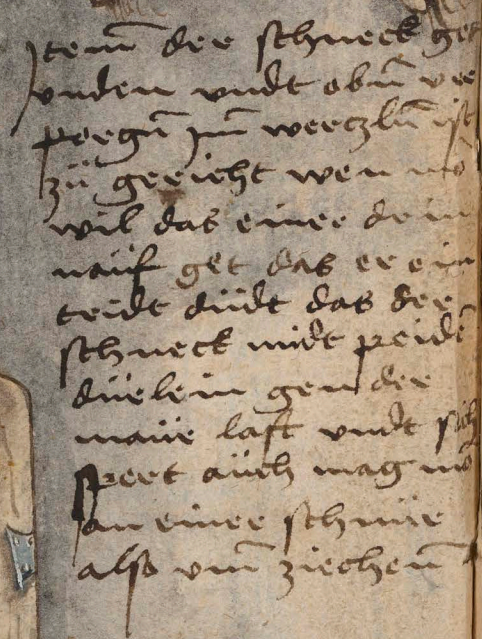 Item der schneck get
vnden vndt obn̄ ver
porgn̄ jm̄ werczlū ist
zü gericht wen mō
wil das einer drin
nauf get das er ein
tridt düdt das der
schneck midt peidē
düelein gen der
maüe last vndt sich
spert aüch mag mō
an einer schnüe
also vm̄ ziechen̄